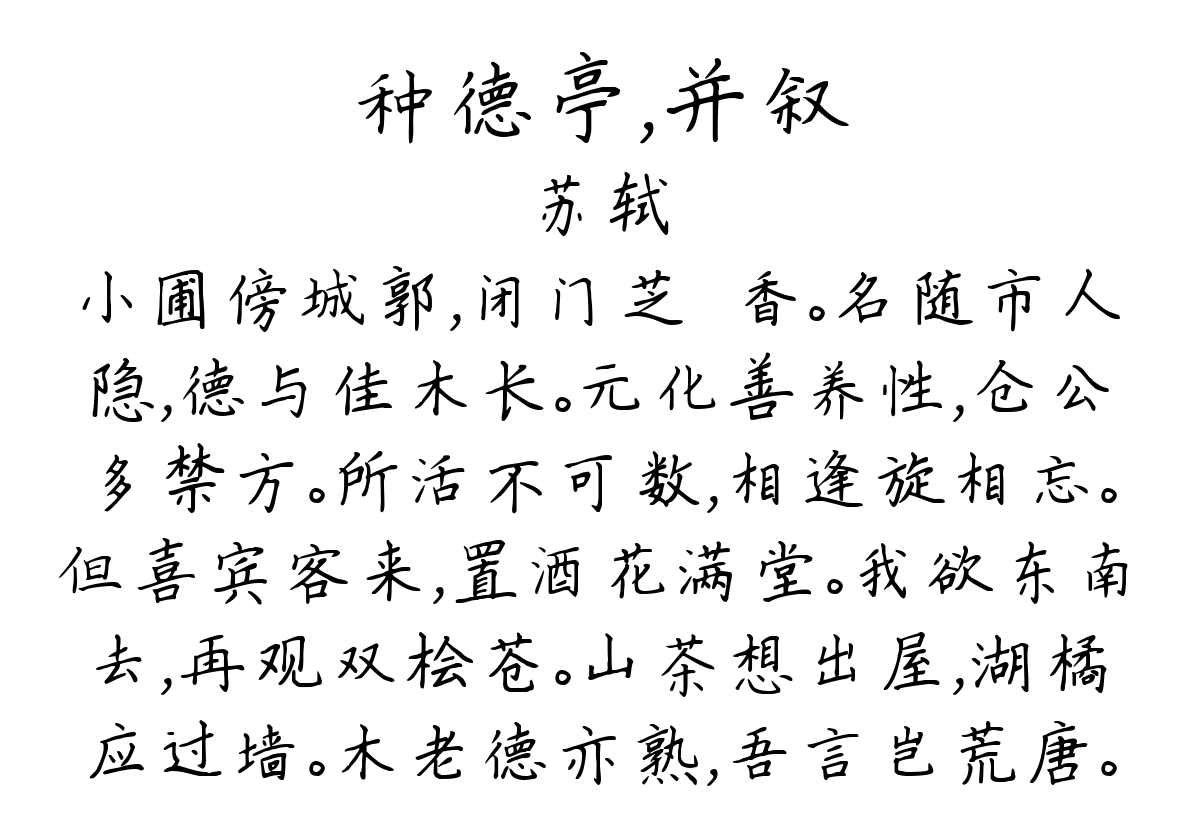 种德亭,并叙
苏轼
小圃傍城郭,闭门芝 香。名随市人
隐,德与佳木长。元化善养性,仓公
多禁方。所活不可数,相逢旋相忘。
但喜宾客来,置酒花满堂。我欲东南
去,再观双桧苍。山茶想出屋,湖橘
应过墙。木老德亦熟,吾言岂荒唐。